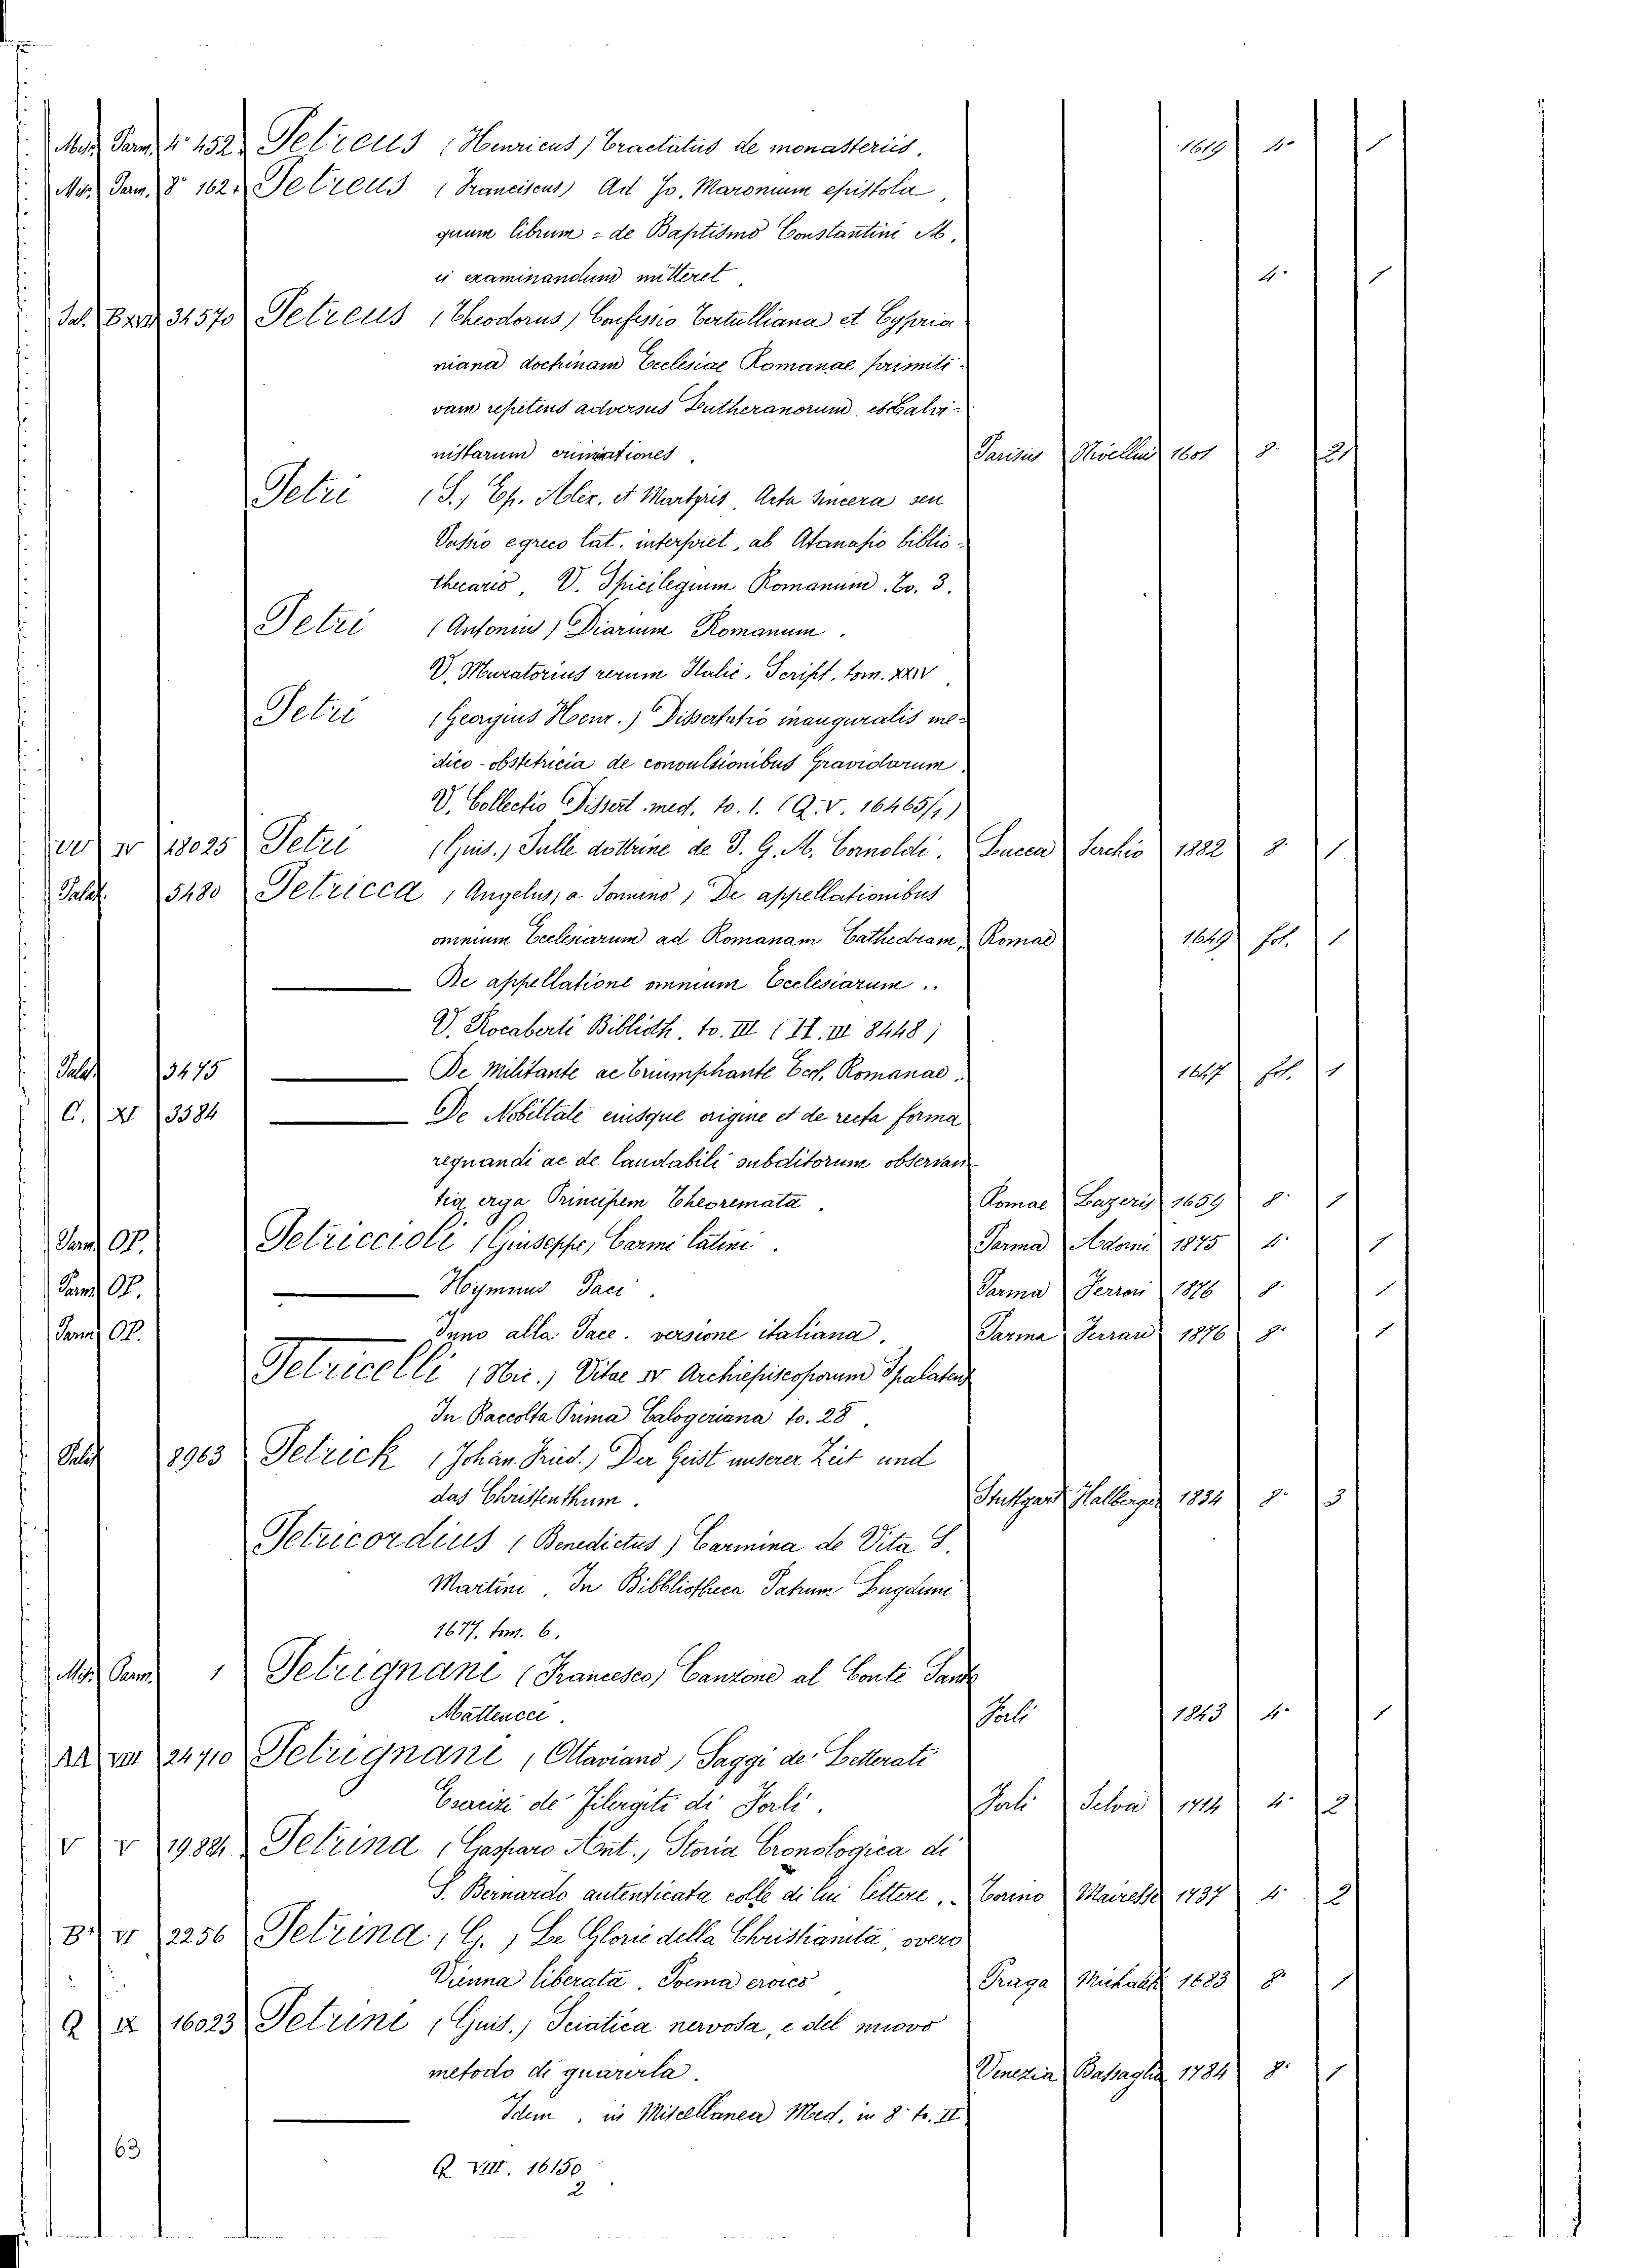 Mss. Parm. 4° 452. Petreus (Henricus) Tractatus de monasteriis. 1619 4° 1
Mss. Parm. 8° 162. Petreus (Franciscus) Ad Jo. Maronium epistola,
quum librum = de Baptismo Constantini M,
ei examinandum mitteret. 4° 1
Pal. 34570 Petreus (Theodorus) Confessio Tertulliana et Cypria
niana dochinam Ecclesiae Romanae primiti-
vam repetens adversus Lutheranorum et Calvi-
nistarum Parisiis Nivellius 1601 8° 21
Petri (S.) Ep. Alex. et Martyris, Acta sincera seu
Passio e greco lat. interpret, ab Atanasio biblio-
thecario, V. Spicilegium Romanum. To. 3.
Petri (Antonius) Diarium Romanum.
V. Muratorius rerum Italic. Script. tom. XXIV
Petri (Georgius Henr.) Dissertatio inauguralis me-
dico-obstetricia de convulsionibus Gravidarum.
V. Collectio Dissert. med. to. 1. (Q. V. 16465/1.)
IV 18025 Petri (Guis.) Sulle dottrine de P. G. M. Cornoldi. Lucca Serchio 1882 8° 1
Palat. 5480 Petricca (Angelus, a Sonnino) De appellationibus
omnium Ecclesiarum ad Romanam Cathedram, Romae 1649 fol. 1
De appellatione omnium Ecclesiarum..
V. Rocaberti Biblioth. to. III (H. III 8448)
Palat. 3475 De Militante ac Triumphante Eccl. Romanae. 1647 fol. 1
C. XI 3384 De Nobiltate eiusque origine et de recta forma
regnandi ac de laudabili subditorum observan-
tia erga Principem Theoremata. Romae Lazeris 1659 8° 1
Parm. OP. Petriccioli (Giuseppe) Carmi latini. Parma Adorni 1875 4° 1
Parm. OP. Hymnus Paci. Parma Ferrari 1876 8° 1
Parm. OP. Inno alla Pace. versione italiana. Parma Ferrari 1876 8° 1
Petricelli (Nic.) Vitae IV Archiepiscoporum Spalatens
In Raccolta Prima Calogeriana to. 28.
Palat. 8963 Petrick (Johan. Fried.) Der Geist unserer Zeit und
das Christenthum. Stuttgart Halberger 1834 8° 3
Petricordius (Benedictus) Carmina de Vita S.
Martini. In Bibbliotheca Patrum Lugduni
1677. tom. 6.
Mss. Parm. 1 Petrignani (Francesco) Canzone al Conte Sante
Matteucci. Forli 1843 4° 1
AA VIII 24710 Petrignani (Ottaviano) Saggi de' Letterati
Esercizi de' Filergiti di Forli. Forli Selva 1714 4° 2
V V 19884 Petrina (Gasparo Ant.) Storia Cronologica di
S. Bernardo autenticata colle di lui lettere. Torino Mairesse 1737 4° 2
B VI 2256 Petrina (G.) Le Glorie della Christianità, overo
Vienna liberata. Poema eroico Praga Michalek 1683 8° 1
Q IX 16023 Petrini (Guis.) Sciatica nervosa, e del nuovo
metodo di guarirla. Venezia Bassaglia 1784 8° 1
Idem, in Miscellanea Med. in 8° to. II
Q VIII. 16150
2
63